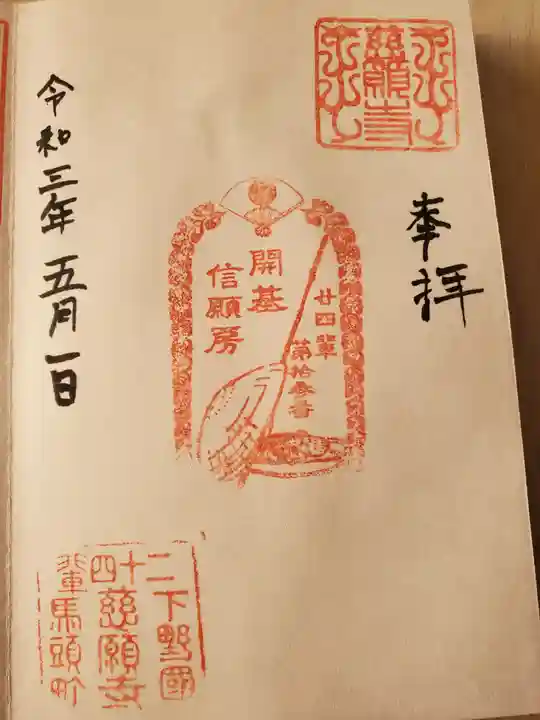 慈願寺
奉拝
廿四輩
第拾参番
開基
信願房
令和三年五月一日
二下野國
十慈願寺
四
輩馬頭町